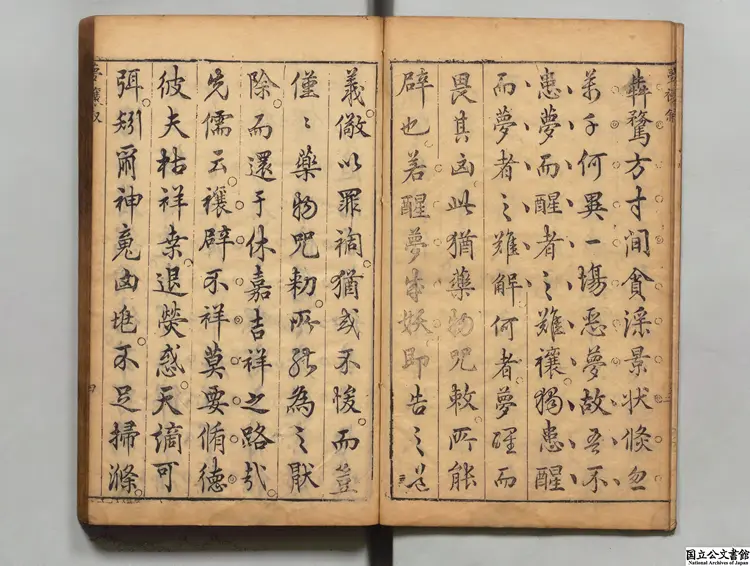 犇騖方寸間貪淫景狀倏忽
萬千何異一場惡夢故吾不
患夢而醒者之難禳獨患醒
而夢者之難解何者夢醒而
畏其凶此猶藥物咒敕所能
辟也若醒夢成妖即告之
義儆以罪禍猶或不悛而豈
僅〻藥物咒勑所能為之厭
除而還于休嘉吉祥之路哉
先儒云禳辟不祥莫要脩德
彼夫枯祥桒退熒惑天謫可
弭矧爾神鬼凶妖不足掃滌
夢禳
四
国立公文書館
National Archives of Japan